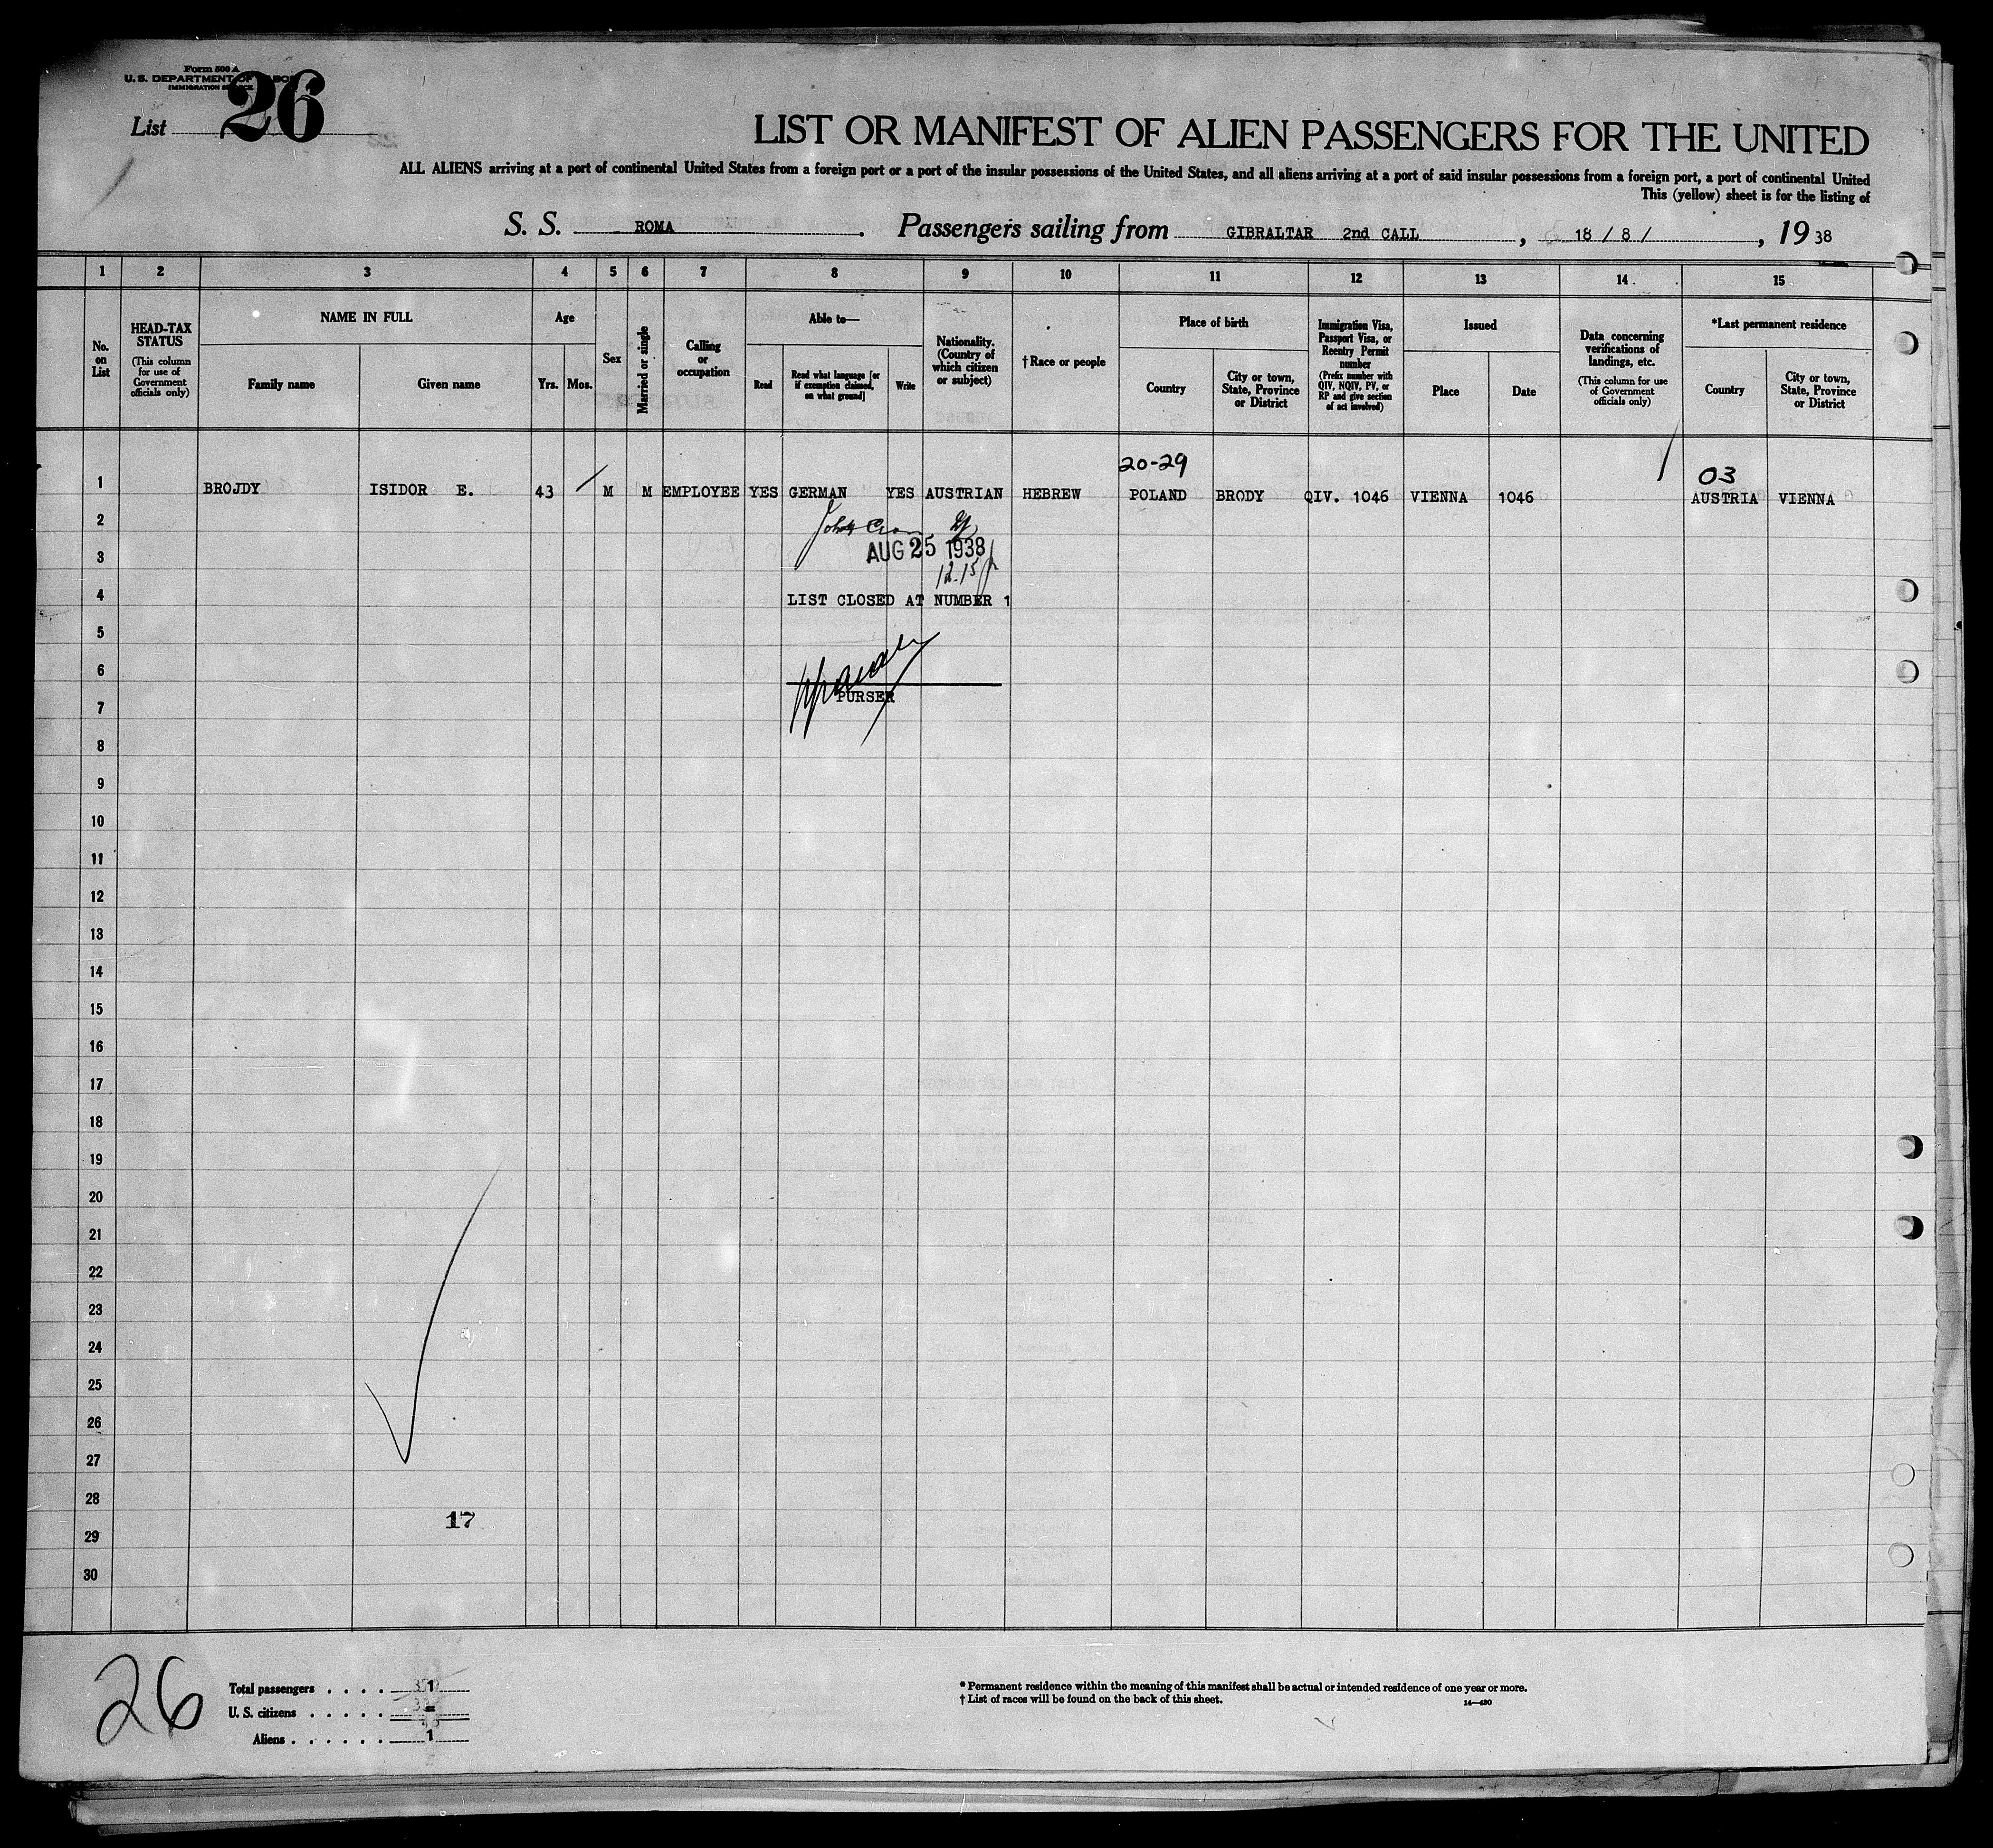 Form 500 A
U. S. DEPARTMENT OF LABOR
IMMIGRATION SERVICE
List 26
LIST OR MANIFEST OF ALIEN PASSENGERS FOR THE UNITED
ALL ALIENS arriving at a port of continental United States from a foreign port or a port of the insular possessions of the United States, and all aliens arriving at a port of said insular possessions from a foreign port, a port of continental United
This (yellow) sheet is for the listing of
S. S. ROMA. Passengers sailing from GIBRALTAR 2nd CALL, 18 / 8 /, 19 38
1 2 3 4 5 6 7 8 9 10 11 12 13 14 15
No. on List
HEAD-TAX STATUS
(This column for use of Government officials only)
NAME IN FULL
Family name
Given name
Age
Yrs. Mos.
Sex
Married or single
Calling or occupation
Able to—
Read
Read what language [or if exemption claimed, on what ground]
Write
Nationality. (Country of which citizen or subject)
† Race or people
Place of birth
Country
City or town, State, Province or District
Immigration Visa, Passport Visa, or Reentry Permit number
(Prefix number with QIV, NQIV, PV, or RP and give section of act involved)
Issued
Place
Date
Data concerning verifications of landings, etc.
(This column for use of Government officials only)
*Last permanent residence
Country
City or town, State, Province or District
20-29
03
1 BROJDY ISIDOR E. 43 M M EMPLOYEE YES GERMAN YES AUSTRIAN HEBREW POLAND BRODY QIV. 1046 VIENNA 1046 AUSTRIA VIENNA
2
AUG 25 1938
3
12.15
4 LIST CLOSED AT NUMBER 1
5
6
PURSER
7
8
9
10
11
12
13
14
15
16
17
18
19
20
21
22
23
24
25
26
27
28
17
29
30
26
Total passengers . . . . 1
U. S. citizens . . . . .
Aliens . . . . . . 1
* Permanent residence within the meaning of this manifest shall be actual or intended residence of one year or more.
† List of races will be found on the back of this sheet.
14—430